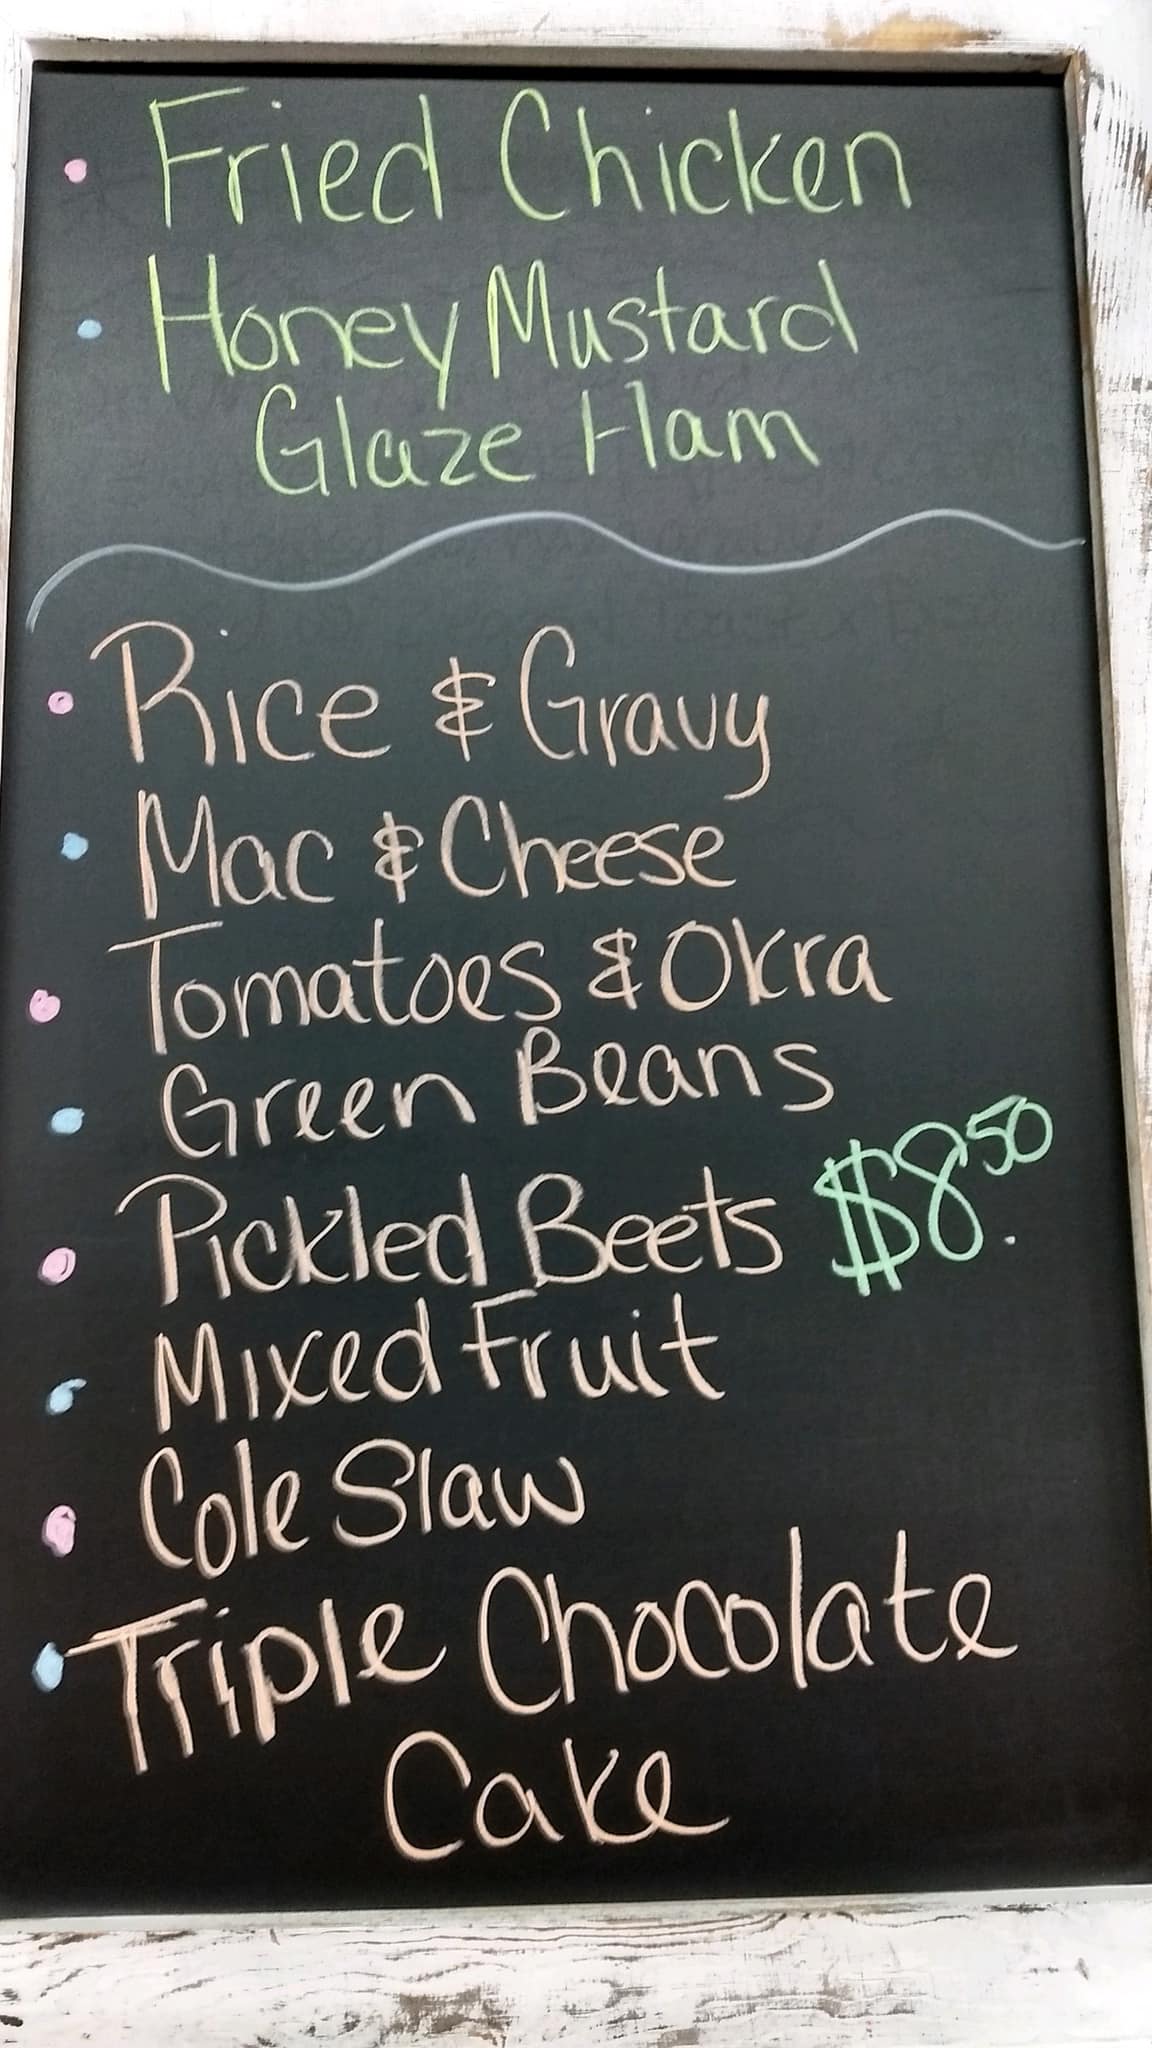 Fried Chicken
Honey Mustard
Glaze Ham
Rice & Gravy
Mac & Cheese
Tomatoes & Okra
Green Beans
Pickled Beets $8.50
Mixed Fruit
Cole Slaw
Triple Chocolate
Cake